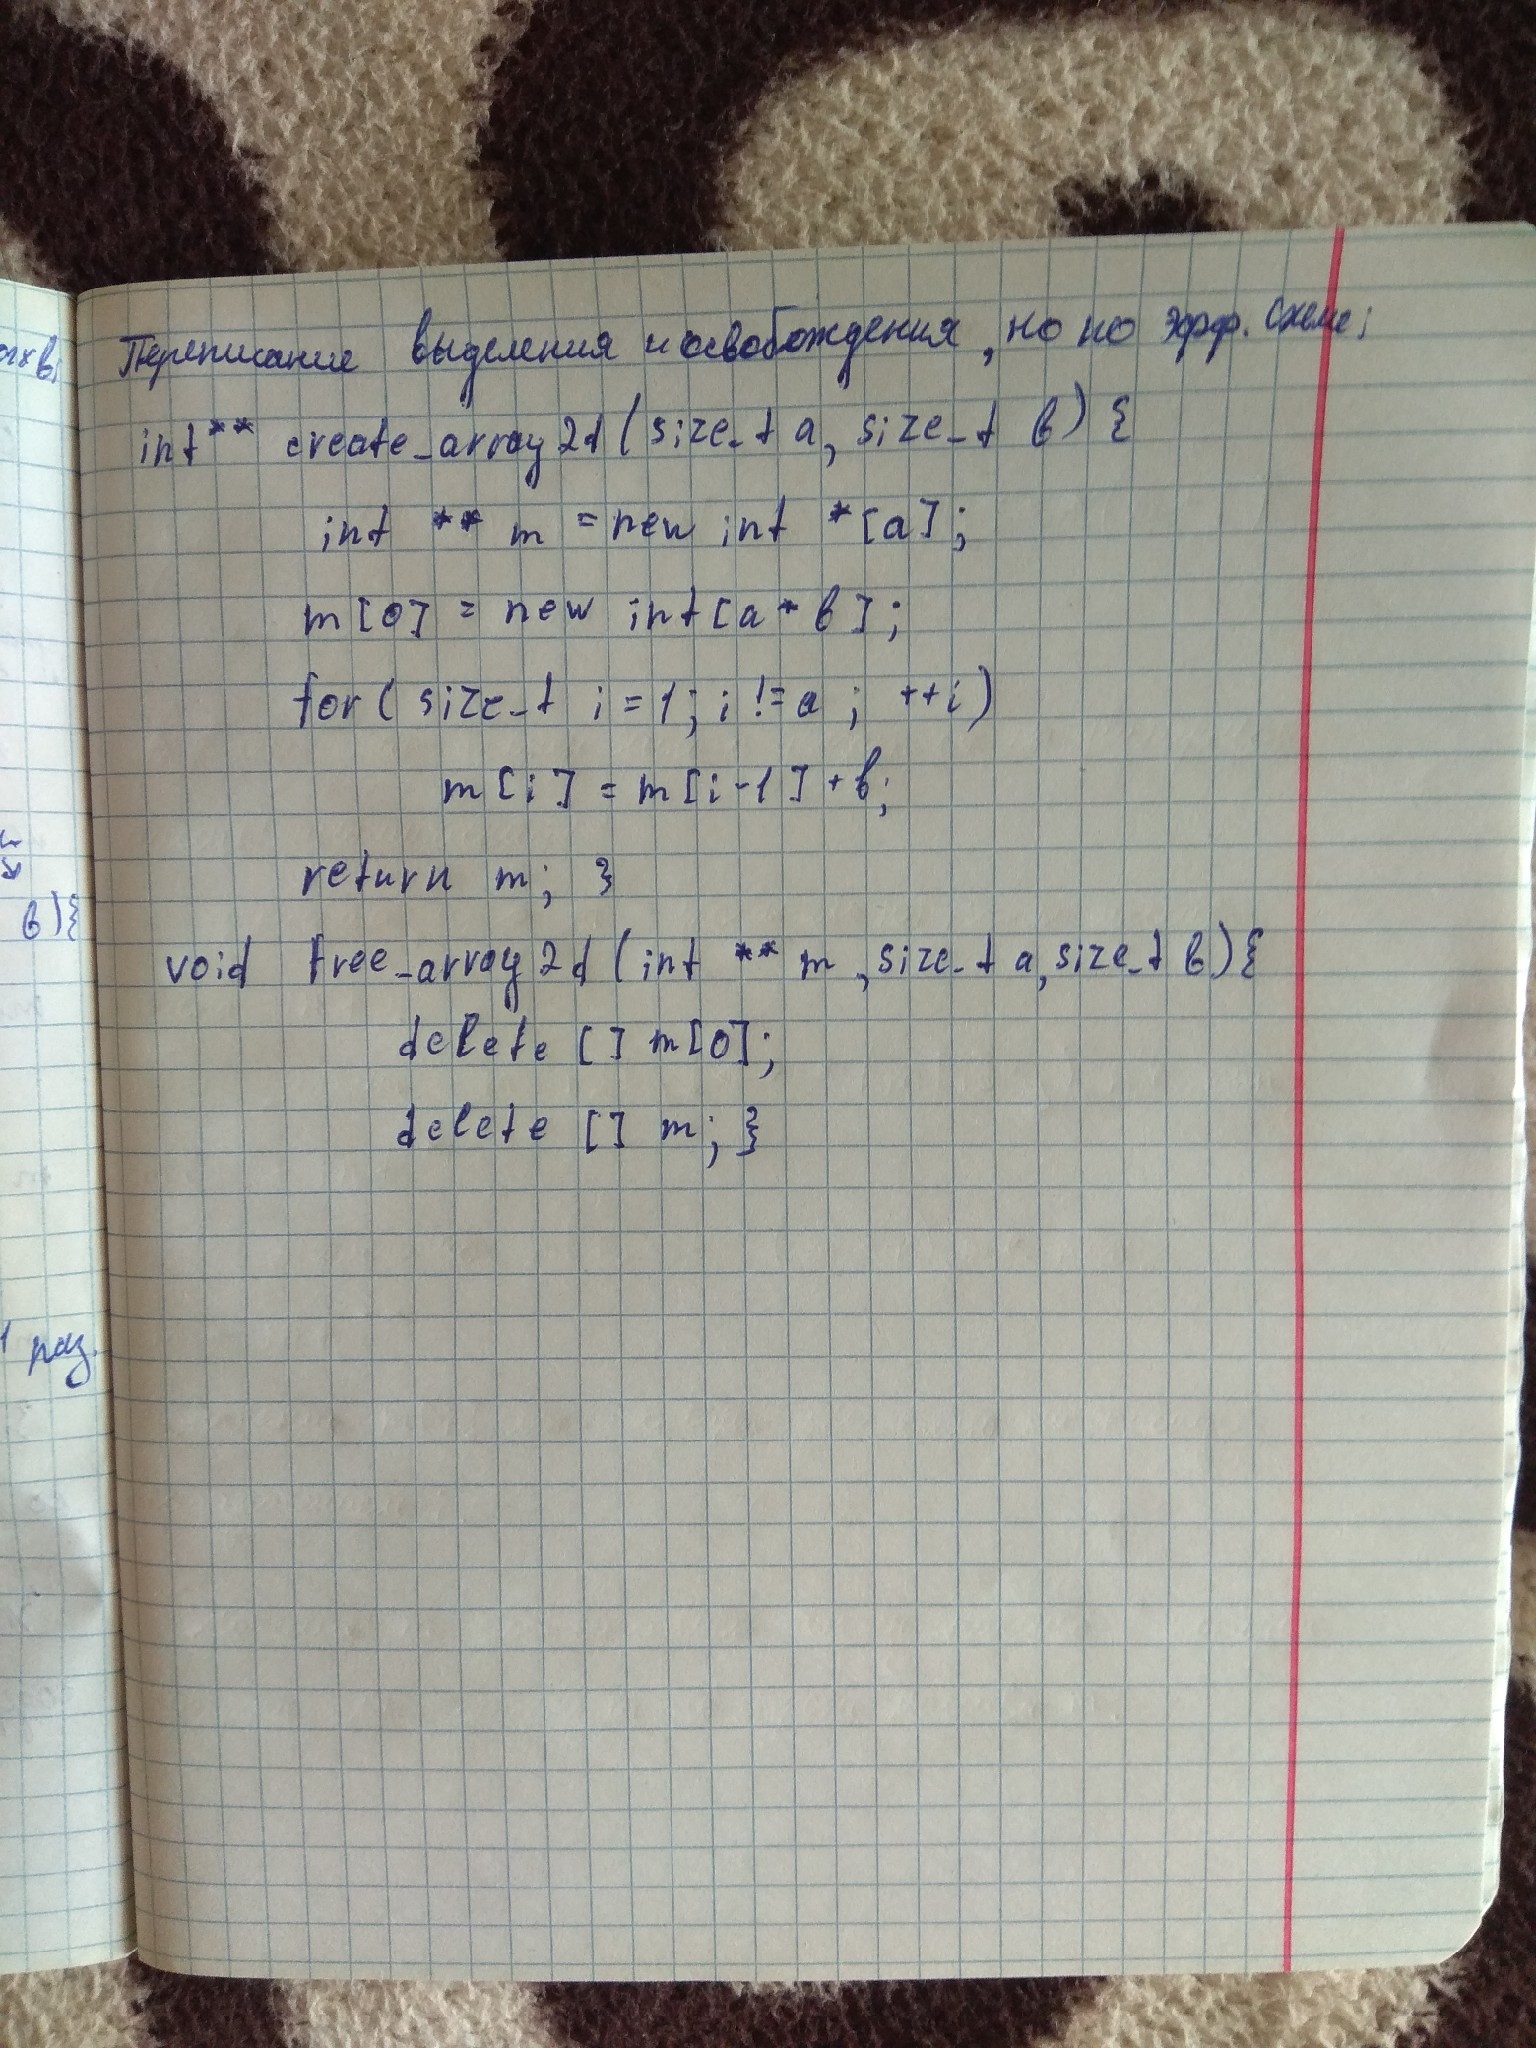 Переписание выделения и освобождения, но по эфф. схеме:
int** create_array2d(size_t a, size_t b) {
int ** m = new int *[a];
m[0] = new int[a * b];
for( size_t i = 1; i != a ; ++i)
m[i] = m[i-1] + b;
return m; }
void free_array2d (int ** m, size_t a, size_t b){
delete [] m[0];
delete [] m; }
b){
1 раз.